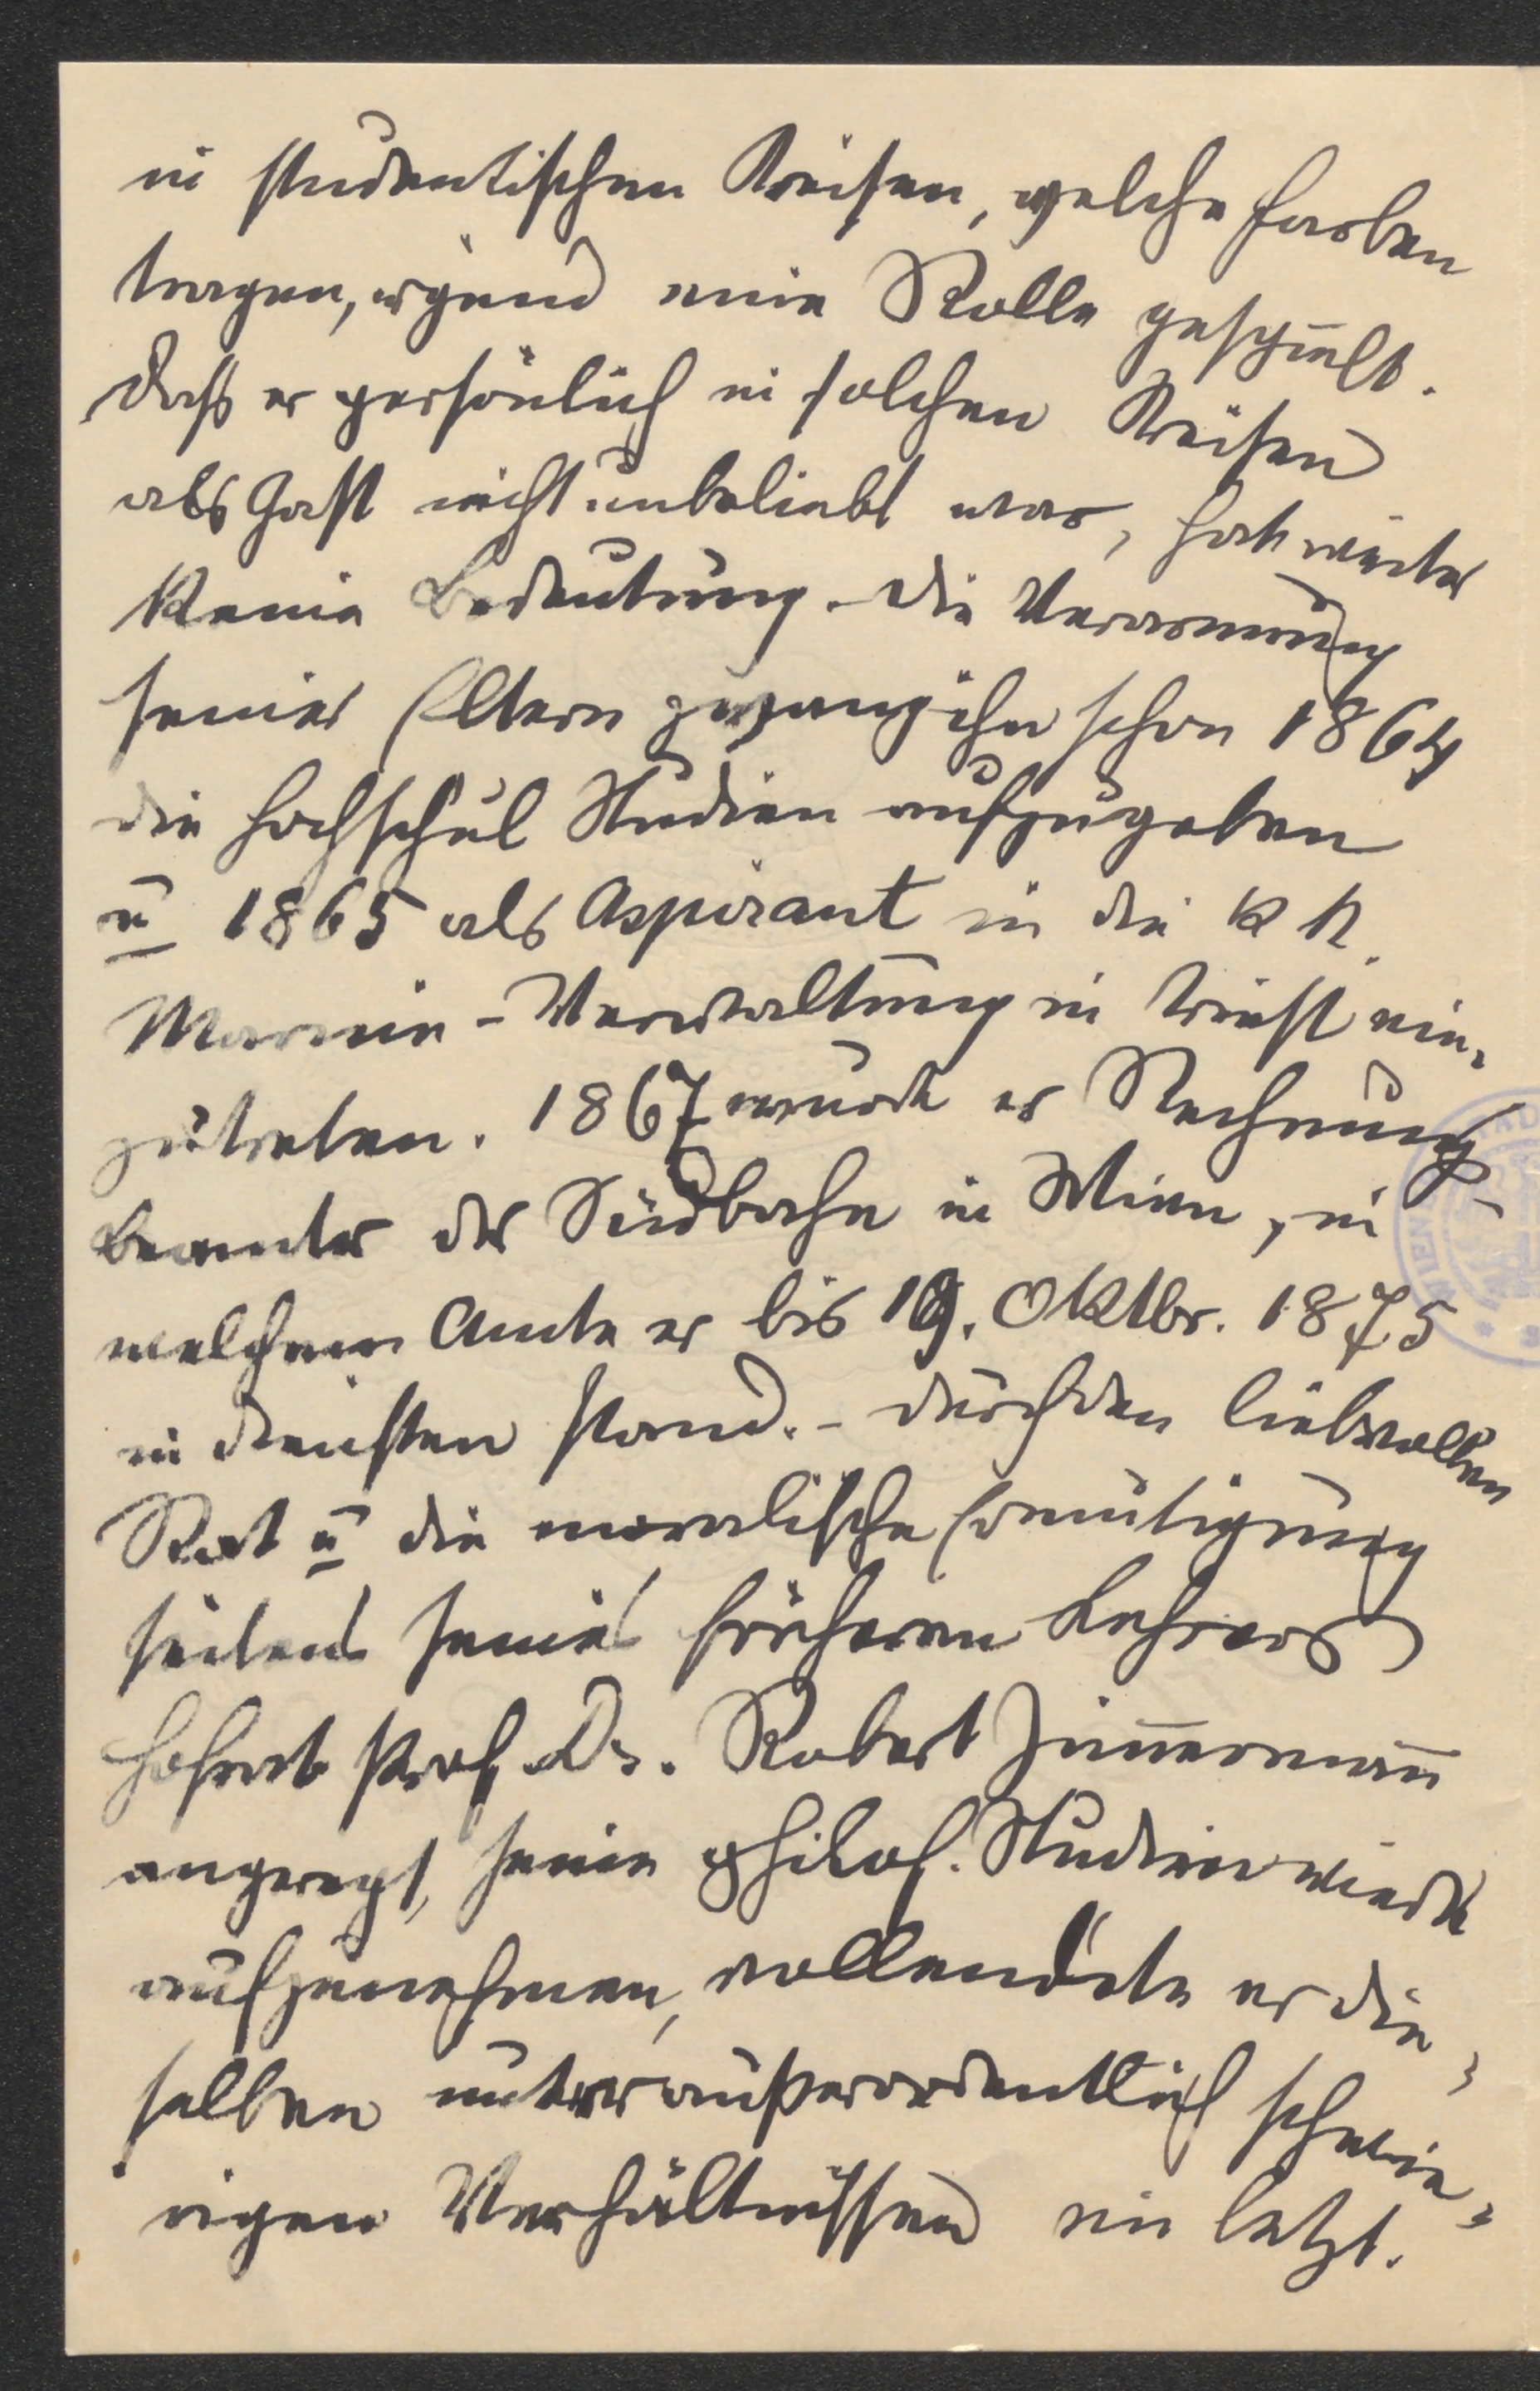 in studentischen Kreisen, welche Farben
tragen, irgend eine Rolle gespielt.
Daß er persönlich in solchen Kreisen
als Gast nicht unbeliebt war, hat weiter
keine Bedeutung. – Die Verarmung
seiner Eltern zwang ihn schon 1864
die Hochschul Studien aufzugeben
u 1865 als Aspirant in die k k.
Marine-Verwaltung in Triest ein-
zutreten. 1867 wurde er Rechnungs-
beamter der Südbahn in Wien, in
welchem Amte er bis 19. Oktbr. 1875
in Diensten stand. – Durch den liebevollen
Rat u die moralische Ermutigung
seitens seines früheren Lehrers
Hofrat Prof. Dr. Robert Zimmermann
angeregt, seine philos. Studien wieder
aufzunehmen, vollendete er die-
selben unter außerordentlich schwie-
rigen Verhältnissen im letzt.